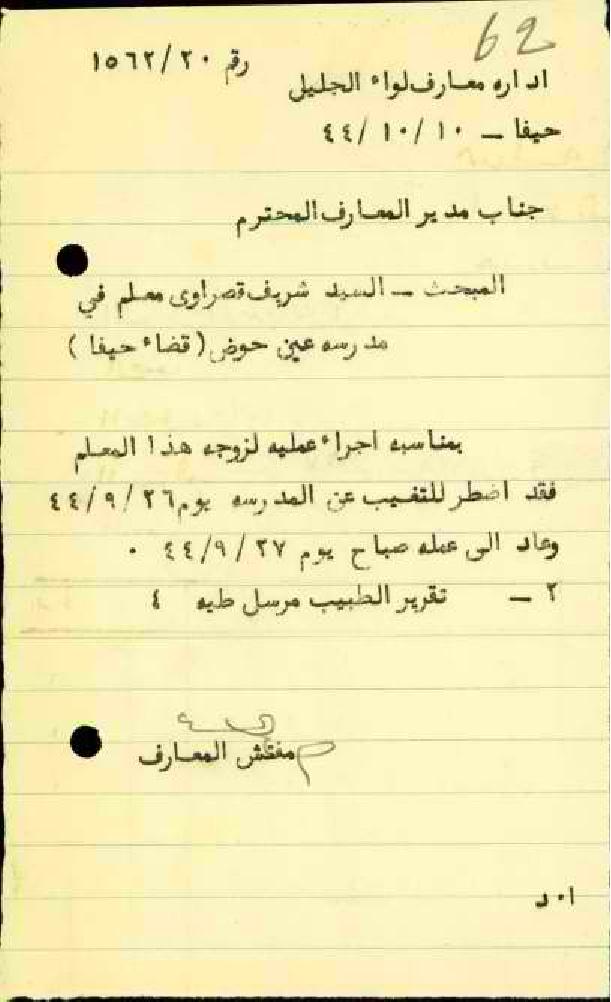 62
رقم ١٥٦٢/٢٠
اداره معارف لواء الجليل
حيفا _ ١٠ /١٠/ ٤٤
جناب مدير المعارف المحترم
المبحث _ السيد شريف قصراوى معلم في
مدرسه عين حوض ( قضاء حيفا )
بمناسبه اجراء عمليه لزوجه هذا المعلم
فقد اضطر للتغيب عن المدرسه يوم ٤٤/٩/٢٦
وعاد الى عمله صباح يوم ٤٤/٩/٢٧ ٠
٢ _ تقرير الطبيب مرسل طيه ٤
مفتش المعارف
ا٠د